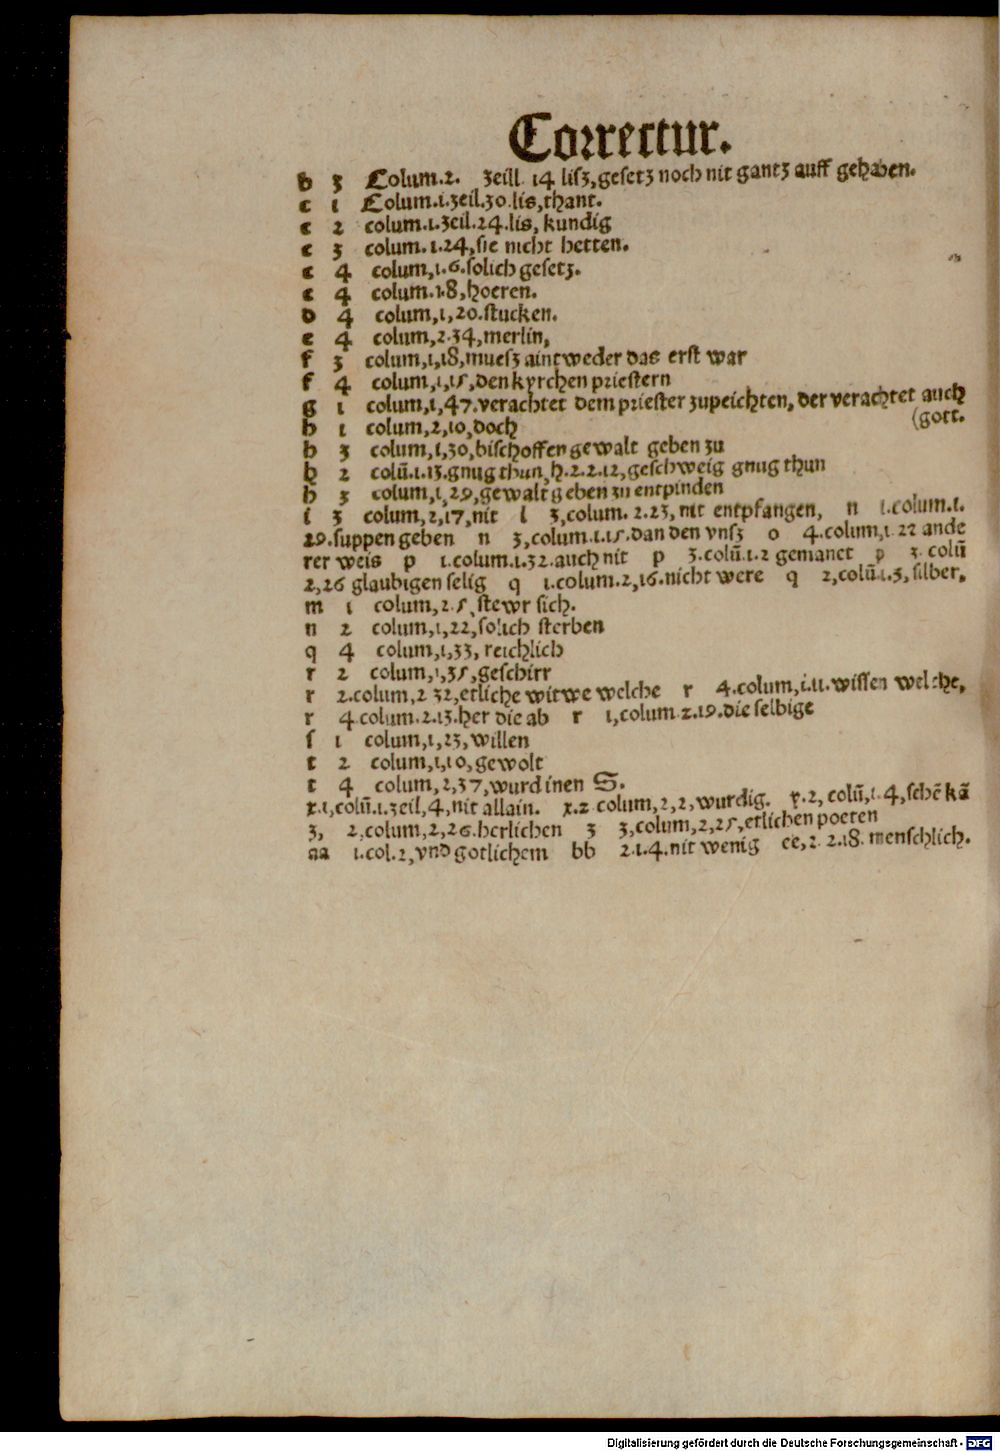 Correctur.
b 3 Colum.2. zeill 14 lisz,gesetz noch nit gantz auff gehaben.
c 1 Colum.1.zeil.30.lis,thant.
c 2 colum.1.zeil.24.lis, kundig
c 3 colum.1.24,sie nicht hetten.
c 4 colum,1.6.solich gesetz.
c 4 colum.1.8,hoeren.
d 4 colum,1,20.stucken.
e 4 colum,2.34,merlin,
f 3 colum,1,18,muesz aintweder das erst war
f 4 colum,1,15,den kyrchen priestern
g 1 colum,1,47.verachtet dem priester zupeichten, der verachtet auch
(gott.
h 1 colum,2,10,doch
h 3 colum,1,30,bischoffen gewalt geben zu
h 2 colū.1.13.gnug thun,h.2.2.12,geschweig gnug thun
h 3 colum,1,29,gewalt geben zu entpinden
i 3 colum,2,17,nit l 3,colum. 2.23, nit entpfangen, n 1.colum.1.
29.suppen geben n 3,colum.1.15.dan den vnsz o 4.colum,1.22 ande
rer weis p 1.colum.1.32.auch nit p 3.colū.1.2 gemanet p 3. colū
2,26 glaubigen selig q 1.colum.2,16.nicht were q 2,colū.1.3,silber,
m 1 colum,2.5,stewr sich.
n 2 colum,1,22,solich sterben
q 4 colum,1,33, reichlich
r 2 colum,1,35,geschirr
r 2.colum,2 32,etliche witwe welche r 4.colum,1.11.wissen welche,
r 4.colum.2.13.her die ab r 1,colum 2.19.die selbige
s 1 colum,1,23,willen
t 2 colum,1,10,gewolt
t 4 colum,2,37,wurd inen S.
x.1,colū.1.zeil,4,nit allain. x.2 colum,2,2,wurdig. x.2, colū,1.4,schē kā
z, 2,colum,2,26.herlichen z 3,colum,2,25,etlichen poeten
aa 1.col.2,vnd gotlichem bb 2.1.4.nit wenig ee,2. 2.18. menschlich.
Digitalisierung gefördert durch die Deutsche Forschungsgemeinschaft - DFG